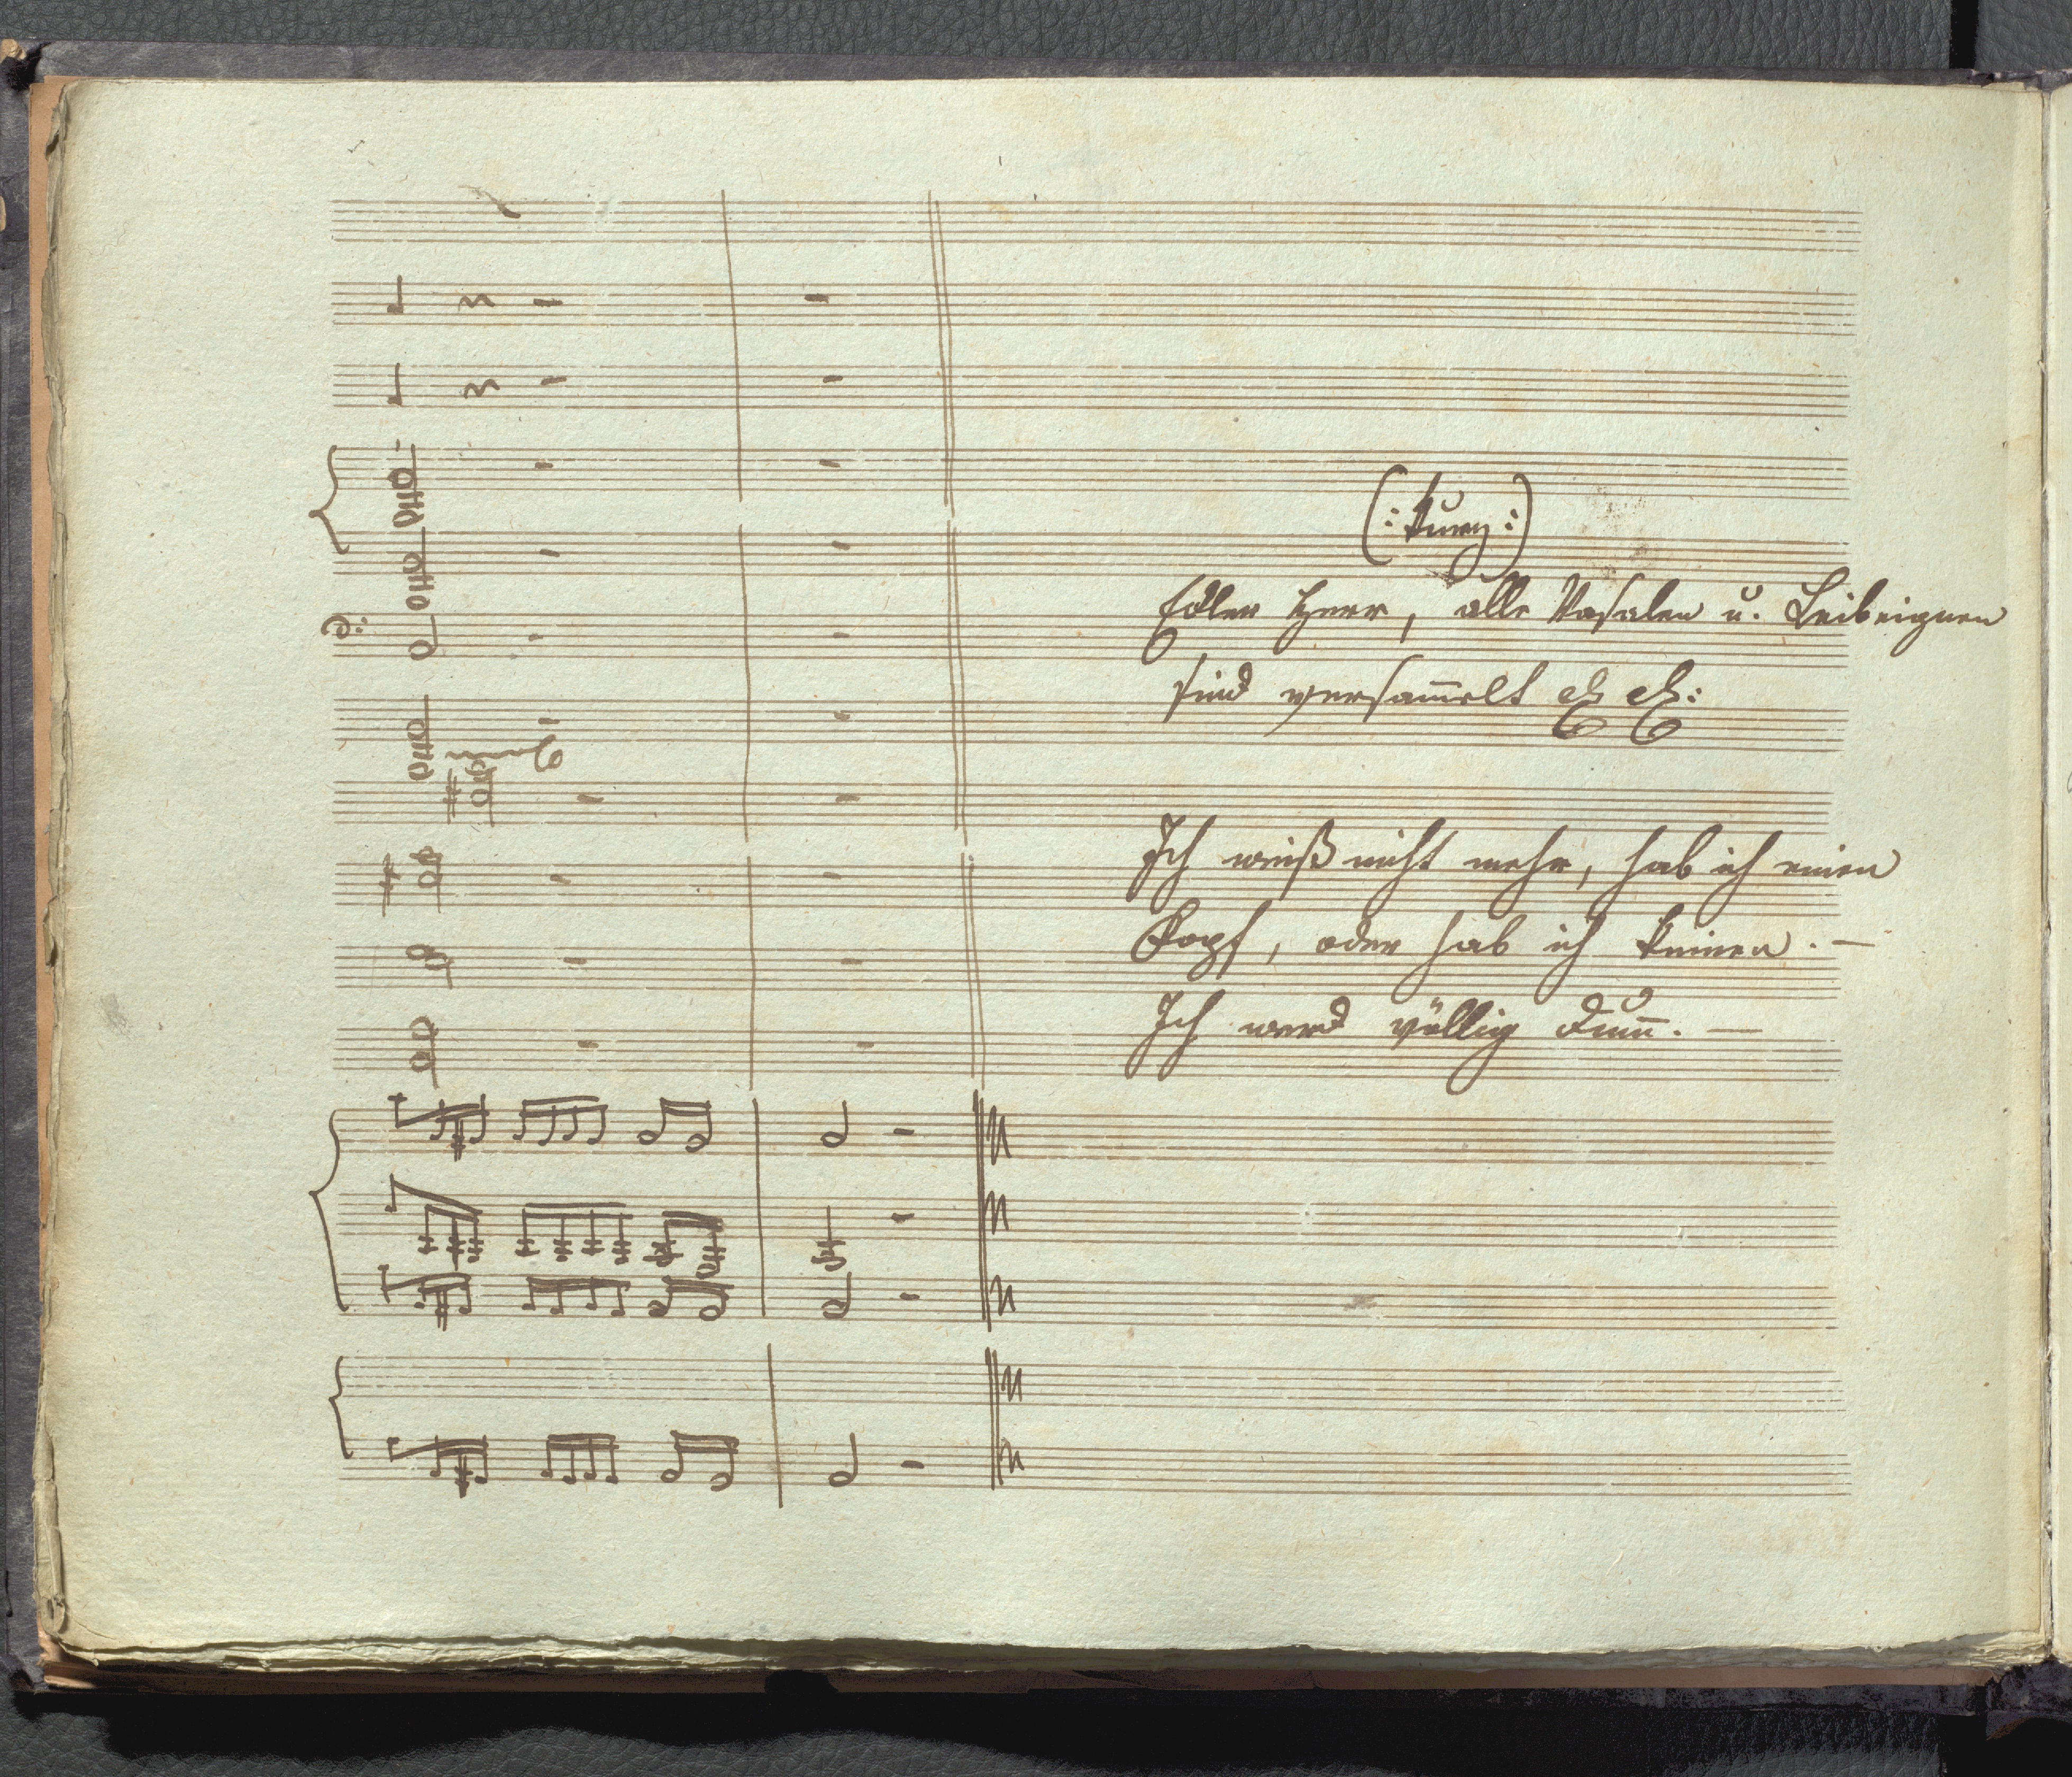 (: kurz :)
Edler Herr, alle Vasalen u. Leibeignen
sind versam̄elt etc etc:
Ich weiß nicht mehr, hab ich einen
Kopf, oder hab ich keinen. —
Ich werd völlig dum̄. —